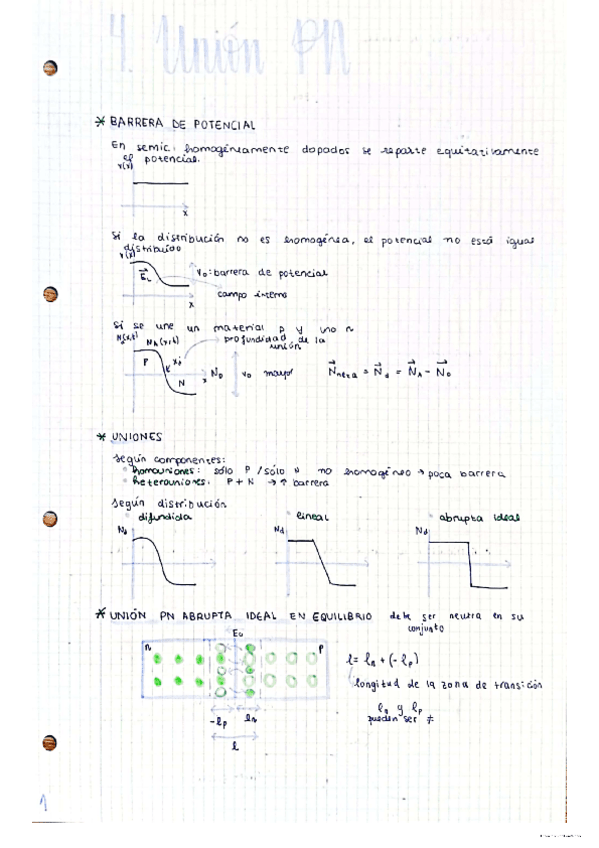 4. Unión PN
* BARRERA DE POTENCIAL
En semic. homogéneamente dopados se reparte equitativamente
el potencial.
V(x)
x
Si la distribución no es homogénea, el potencial no está igual
distribuido
V(x)
E⃗L
V₀: barrera de potencial
campo interno
x
Si se une un material p y uno n
NA(x,t)
profundidad de la
unión
P
xj
N
x
ND
V₀ mayor
N⃗neta = N⃗d = N⃗A - N⃗D
* UNIONES
Según componentes:
homouniones: sólo P / sólo N no homogéneo → poca barrera
heterouniones: P + N → ↑ barrera
Según distribución
difundida
lineal
abrupta ideal
Nd
Nd
Nd
* UNIÓN PN ABRUPTA IDEAL EN EQUILIBRIO debe ser neutra en su
conjunto
n
p
l = ln + (-lp)
longitud de la zona de transición
ln y lp
pueden ser ≠
-lp
ln
l
1